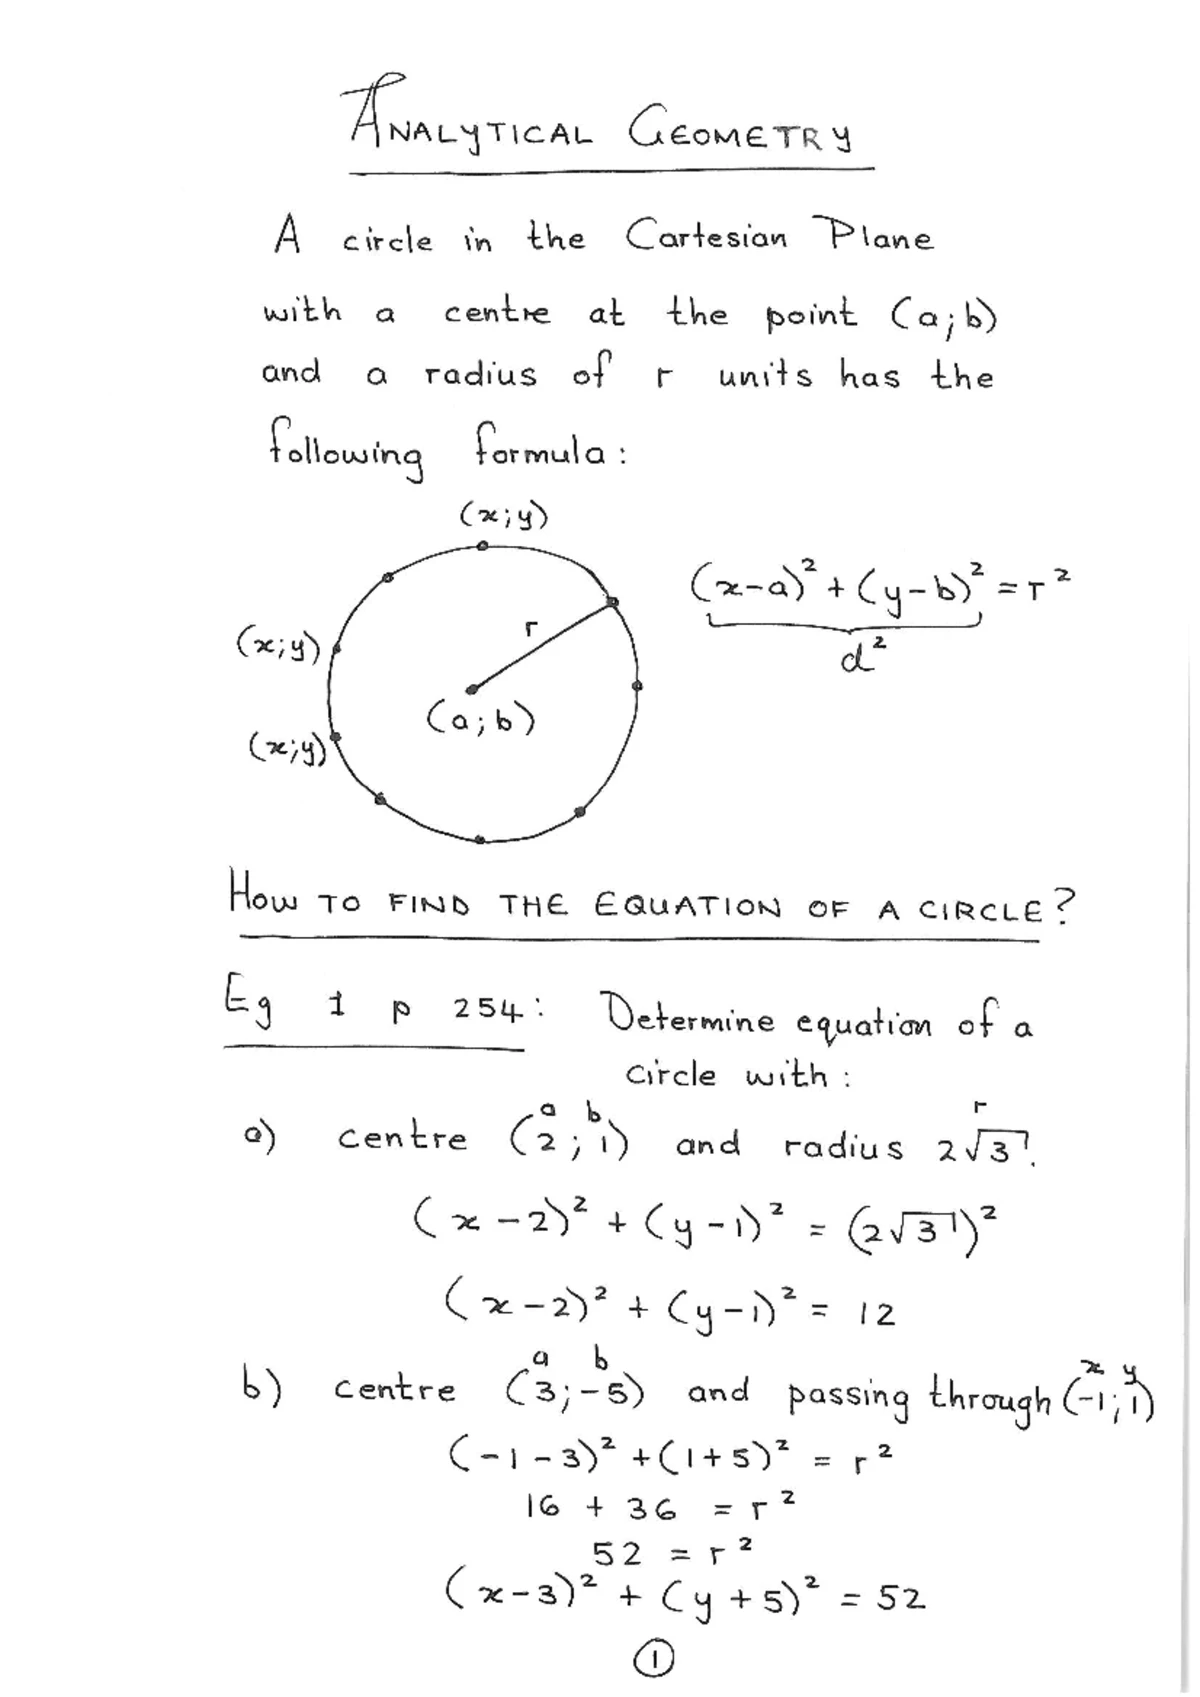 ANALYTICAL GEOMETRY
A circle in the Cartesian Plane
with a centre at the point (a;b)
and a radius of r units has the
following formula:
(x;y)
(x-a)² + (y-b)² = r²
d²
(x;y)
r
(a;b)
(x;y)
HOW TO FIND THE EQUATION OF A CIRCLE?
Eg 1 p 254: Determine equation of a
circle with:
a b r
a) centre (2;1) and radius 2√3.
(x-2)² + (y-1)² = (2√3)²
(x-2)² + (y-1)² = 12
a b x y
b) centre (3;-5) and passing through (-1;1)
(-1-3)² + (1+5)² = r²
16 + 36 = r²
52 = r²
(x-3)² + (y+5)² = 52
1